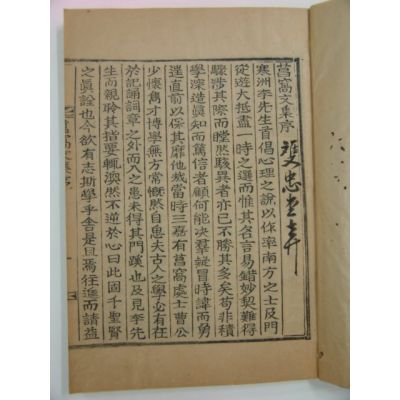 莒窩文集序
雙忠堂
寒洲李先生首倡心理之說以作率南方之士及門
從遊大抵盡一時之選而惟其名言易錯妙契難得
驟涉其際而瞠然駭異者亦已不勝其多矣苟非積
學深造眞知而篤信者顧何能決羣疑冒時諱而勇
邁直前以保其靡他哉當時三嘉有莒窩處士曹公
少恢雋才博學無方慨然自患夫古人之學必有在
於記誦詞章之上而患未得其門蹊也及見李先
生而親聆其指要輒渙然不逆於心曰此固千聖賢
之眞詮也今欲有志斯學乎舍是且焉往進而請益